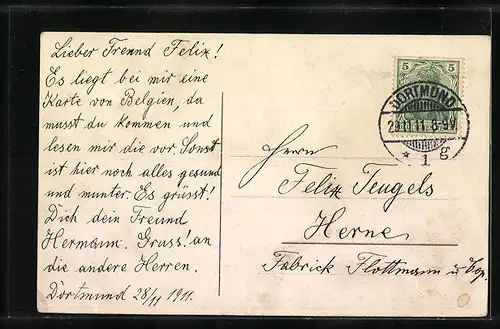 Lieber Freund Felix!
Es liegt bei mir eine
Karte von Belgien, da
musst du kommen und
lesen mir die vor. Sonst
ist hier noch alles gesund
und munter. Es grüsst!
Dich dein Freund
Hermann. Gruss! an
die andere Herren.
Dortmund 28/11 1911.
5 5
DORTMUND
11. 8-9V
* 1 g
Herrn
Felix Teugels
Herne
Fabrick Flottmann u. Cop.